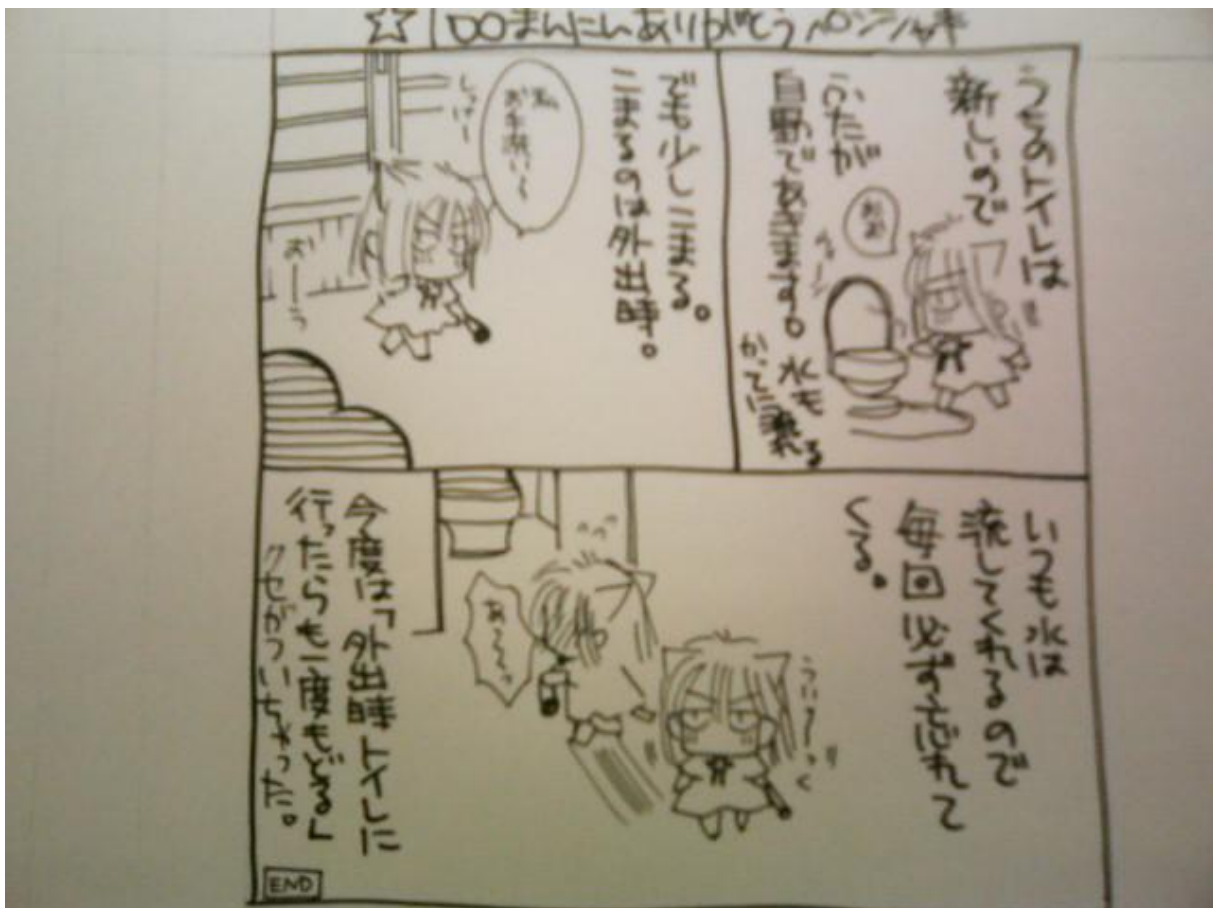 ☆100まんにんありがとうパンシャキ
うちのトイレは
新しいので
ふたが
自動であきます。
水も
かってに流れる
おお
でも少しこまる。
こまるのは外出時。
私
お手洗い〜
おーう
いつも水は
流してくれるので
毎回必ず忘れて
くる。
うい〜っく
あ〜〜っ
今度は「外出時トイレに
行ったらも一度もどる」
クセがついちゃった。
END